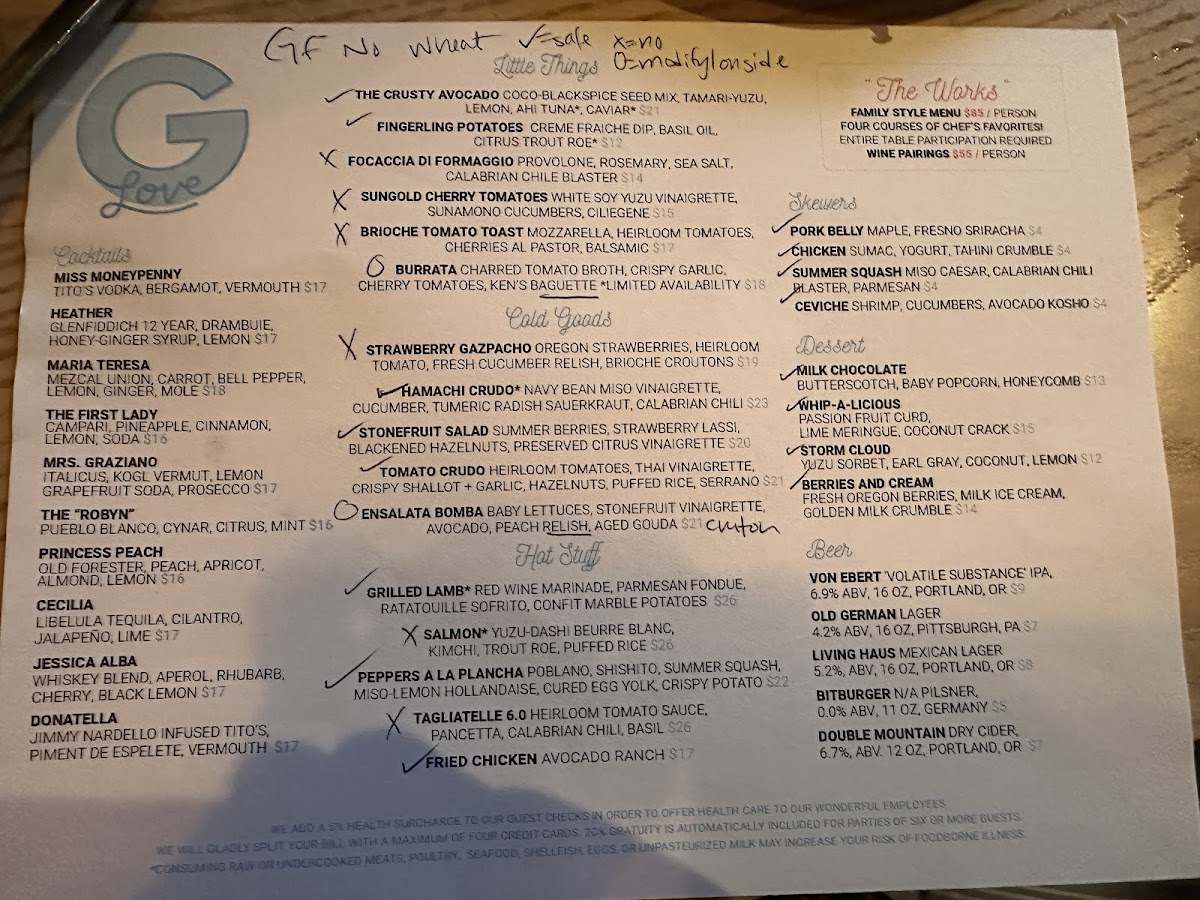 GF No Wheat ✓=safe x=no
O=modify/onside
G
Love
Cocktails
MISS MONEYPENNY
TITO'S VODKA, BERGAMOT, VERMOUTH $17
HEATHER
GLENFIDDICH 12 YEAR, DRAMBUIE,
HONEY-GINGER SYRUP, LEMON $17
MARIA TERESA
MEZCAL UNION, CARROT, BELL PEPPER,
LEMON, GINGER, MOLE $18
THE FIRST LADY
CAMPARI, PINEAPPLE, CINNAMON,
LEMON, SODA $16
MRS. GRAZIANO
ITALICUS, KOGL VERMUT, LEMON
GRAPEFRUIT SODA, PROSECCO $17
THE "ROBYN"
PUEBLO BLANCO, CYNAR, CITRUS, MINT $16
PRINCESS PEACH
OLD FORESTER, PEACH, APRICOT,
ALMOND, LEMON $16
CECILIA
LIBELULA TEQUILA, CILANTRO,
JALAPEÑO, LIME $17
JESSICA ALBA
WHISKEY BLEND, APEROL, RHUBARB,
CHERRY, BLACK LEMON $17
DONATELLA
JIMMY NARDELLO INFUSED TITO'S,
PIMENT DE ESPELETE, VERMOUTH $17
Little Things
✓ THE CRUSTY AVOCADO COCO-BLACKSPICE SEED MIX, TAMARI-YUZU,
LEMON, AHI TUNA*, CAVIAR* $21
✓ FINGERLING POTATOES CREME FRAICHE DIP, BASIL OIL,
CITRUS TROUT ROE* $12
X FOCACCIA DI FORMAGGIO PROVOLONE, ROSEMARY, SEA SALT,
CALABRIAN CHILE BLASTER $14
X SUNGOLD CHERRY TOMATOES WHITE SOY YUZU VINAIGRETTE,
SUNAMONO CUCUMBERS, CILIEGENE $15
X BRIOCHE TOMATO TOAST MOZZARELLA, HEIRLOOM TOMATOES,
CHERRIES AL PASTOR, BALSAMIC $17
O BURRATA CHARRED TOMATO BROTH, CRISPY GARLIC,
CHERRY TOMATOES, KEN'S BAGUETTE *LIMITED AVAILABILITY $18
Cold Goods
X STRAWBERRY GAZPACHO OREGON STRAWBERRIES, HEIRLOOM
TOMATO, FRESH CUCUMBER RELISH, BRIOCHE CROUTONS $19
✓ HAMACHI CRUDO* NAVY BEAN MISO VINAIGRETTE,
CUCUMBER, TUMERIC RADISH SAUERKRAUT, CALABRIAN CHILI $23
✓ STONEFRUIT SALAD SUMMER BERRIES, STRAWBERRY LASSI,
BLACKENED HAZELNUTS, PRESERVED CITRUS VINAIGRETTE $20
✓ TOMATO CRUDO HEIRLOOM TOMATOES, THAI VINAIGRETTE,
CRISPY SHALLOT + GARLIC, HAZELNUTS, PUFFED RICE, SERRANO $21
O ENSALATA BOMBA BABY LETTUCES, STONEFRUIT VINAIGRETTE,
AVOCADO, PEACH RELISH, AGED GOUDA $21 cruton
Hot Stuff
✓ GRILLED LAMB* RED WINE MARINADE, PARMESAN FONDUE,
RATATOUILLE SOFRITO, CONFIT MARBLE POTATOES $26
X SALMON* YUZU-DASHI BEURRE BLANC,
KIMCHI, TROUT ROE, PUFFED RICE $26
✓ PEPPERS A LA PLANCHA POBLANO, SHISHITO, SUMMER SQUASH,
MISO-LEMON HOLLANDAISE, CURED EGG YOLK, CRISPY POTATO $22
X TAGLIATELLE 6.0 HEIRLOOM TOMATO SAUCE,
PANCETTA, CALABRIAN CHILI, BASIL $26
✓ FRIED CHICKEN AVOCADO RANCH $17
"The Works"
FAMILY STYLE MENU $85 / PERSON
FOUR COURSES OF CHEF'S FAVORITES!
ENTIRE TABLE PARTICIPATION REQUIRED
WINE PAIRINGS $55 / PERSON
Skewers
✓ PORK BELLY MAPLE, FRESNO SRIRACHA $4
✓ CHICKEN SUMAC, YOGURT, TAHINI CRUMBLE $4
✓ SUMMER SQUASH MISO CAESAR, CALABRIAN CHILI
BLASTER, PARMESAN $4
✓ CEVICHE SHRIMP, CUCUMBERS, AVOCADO KOSHO $4
Dessert
✓ MILK CHOCOLATE
BUTTERSCOTCH, BABY POPCORN, HONEYCOMB $13
✓ WHIP-A-LICIOUS
PASSION FRUIT CURD,
LIME MERINGUE, COCONUT CRACK $15
✓ STORM CLOUD
YUZU SORBET, EARL GRAY, COCONUT, LEMON $12
✓ BERRIES AND CREAM
FRESH OREGON BERRIES, MILK ICE CREAM,
GOLDEN MILK CRUMBLE $14
Beer
VON EBERT 'VOLATILE SUBSTANCE' IPA,
6.9% ABV, 16 OZ, PORTLAND, OR $9
OLD GERMAN LAGER
4.2% ABV, 16 OZ, PITTSBURGH, PA $7
LIVING HAUS MEXICAN LAGER
5.2%, ABV, 16 OZ, PORTLAND, OR $8
BITBURGER N/A PILSNER,
0.0% ABV, 11 OZ, GERMANY $5
DOUBLE MOUNTAIN DRY CIDER,
6.7%, ABV. 12 OZ, PORTLAND, OR $7
WE ADD A 5% HEALTH SURCHARGE TO OUR GUEST CHECKS IN ORDER TO OFFER HEALTH CARE TO OUR WONDERFUL EMPLOYEES.
WE WILL GLADLY SPLIT YOUR BILL WITH A MAXIMUM OF FOUR CREDIT CARDS. 20% GRATUITY IS AUTOMATICALLY INCLUDED FOR PARTIES OF SIX OR MORE GUESTS.
*CONSUMING RAW OR UNDERCOOKED MEATS, POULTRY, SEAFOOD, SHELLFISH, EGGS, OR UNPASTEURIZED MILK MAY INCREASE YOUR RISK OF FOODBORNE ILLNESS.